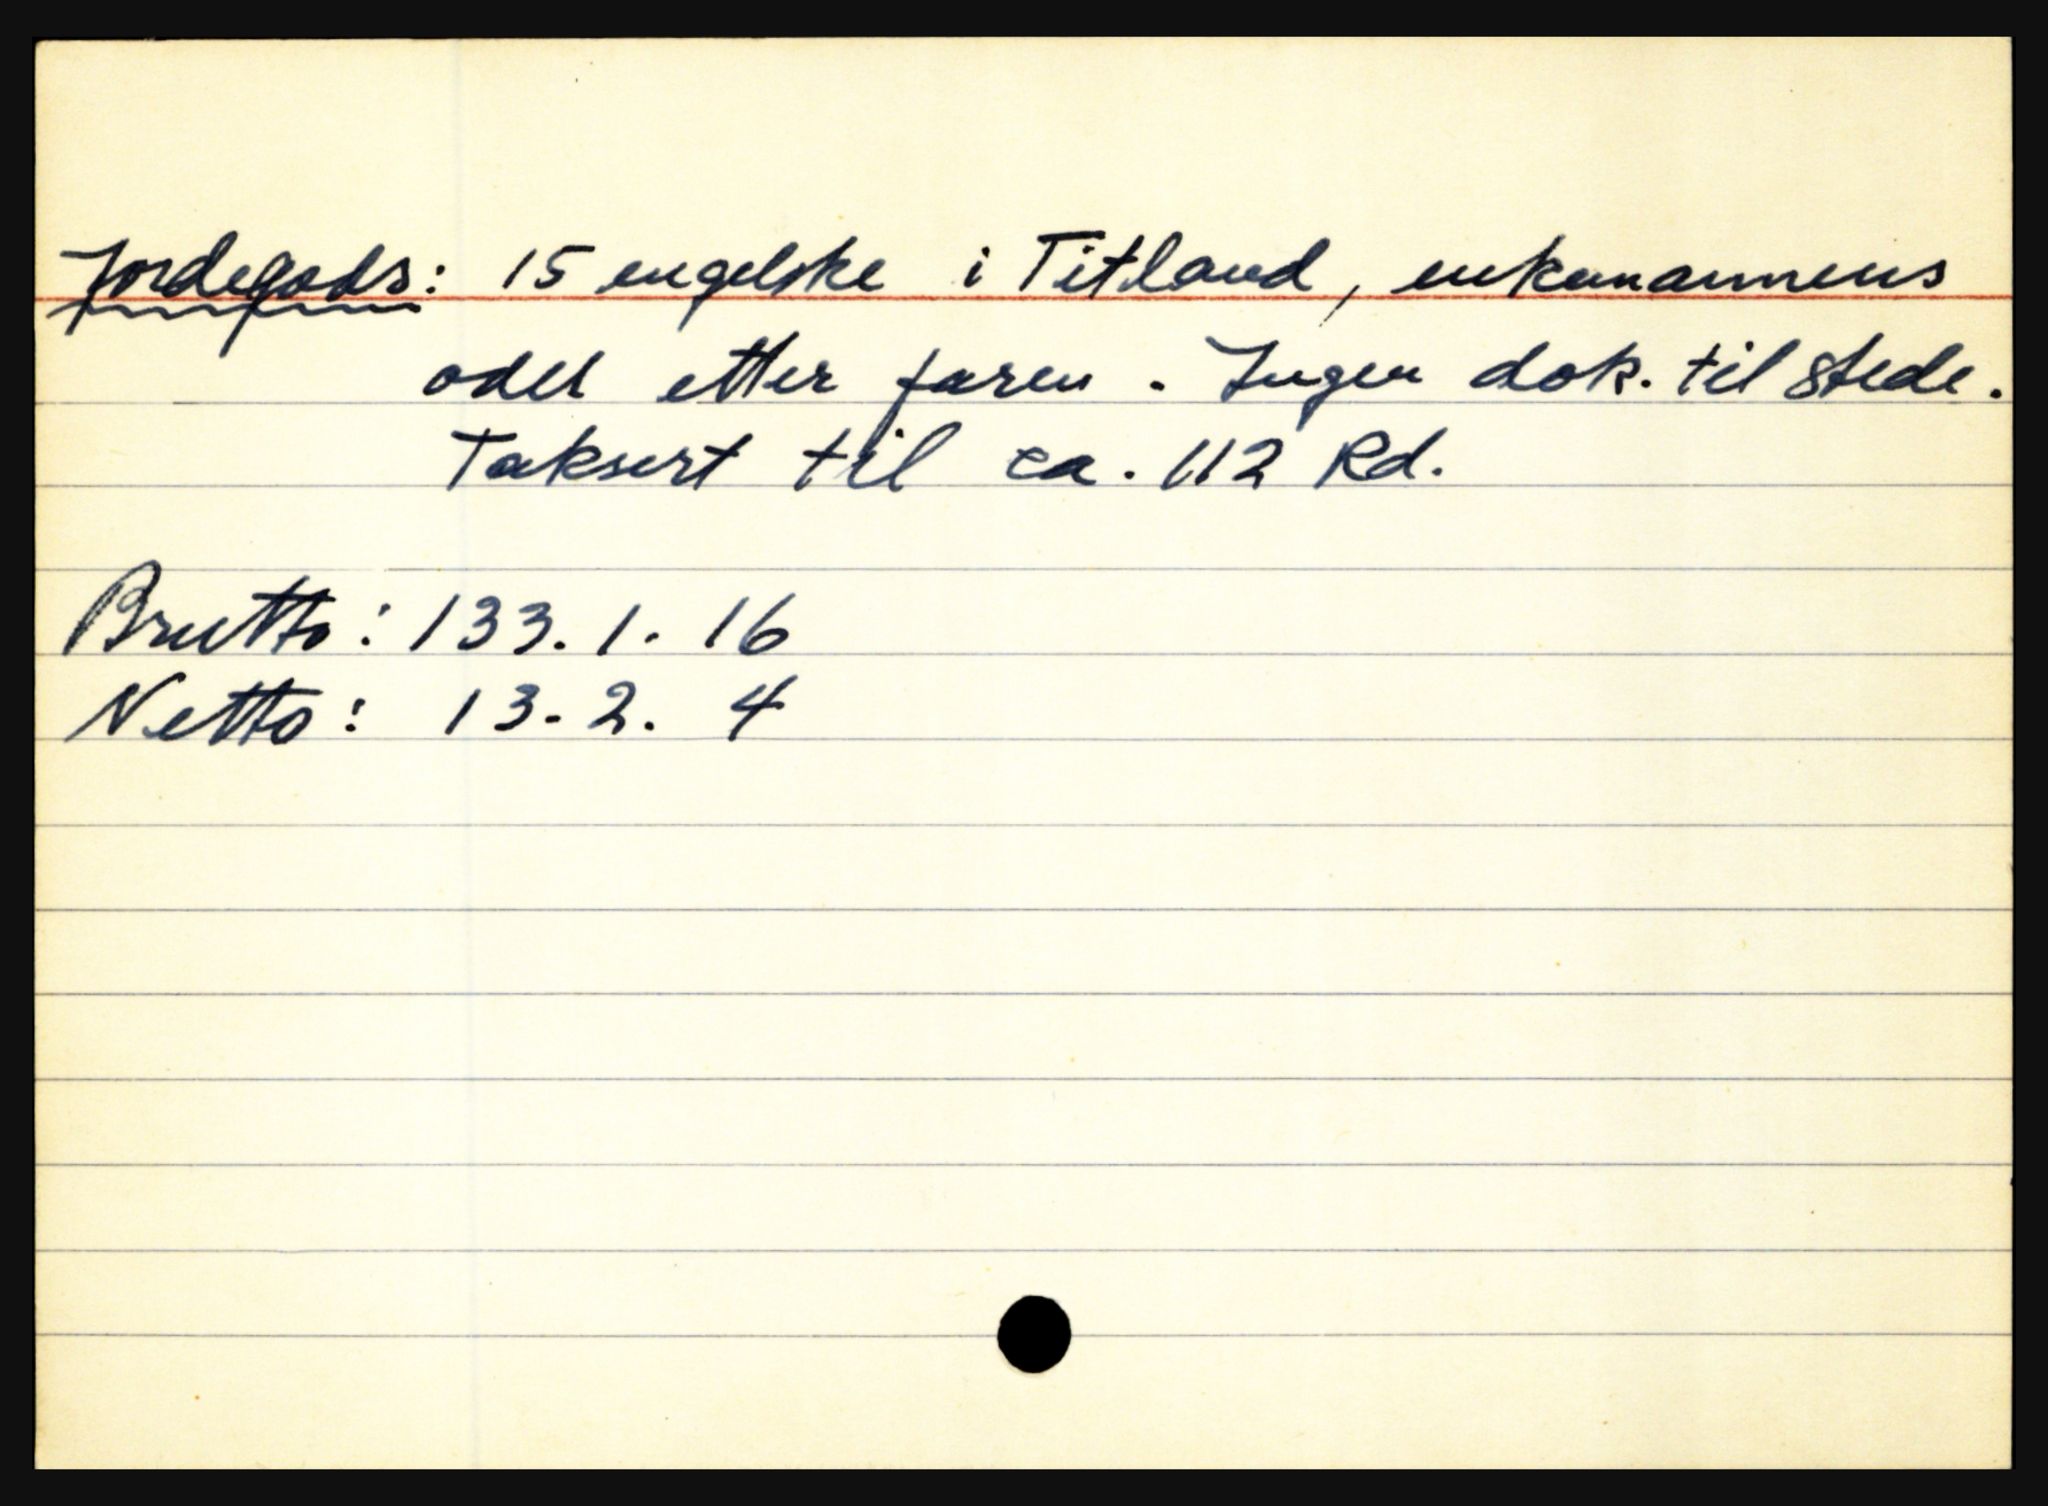 Jordegods: 15 engelske i Titland, enkemannens
odel etter faren. Ingen dok. til stede.
Taksert til ca. 112 Rd.
Brutto: 133. 1. 16
Netto: 13. 2. 4